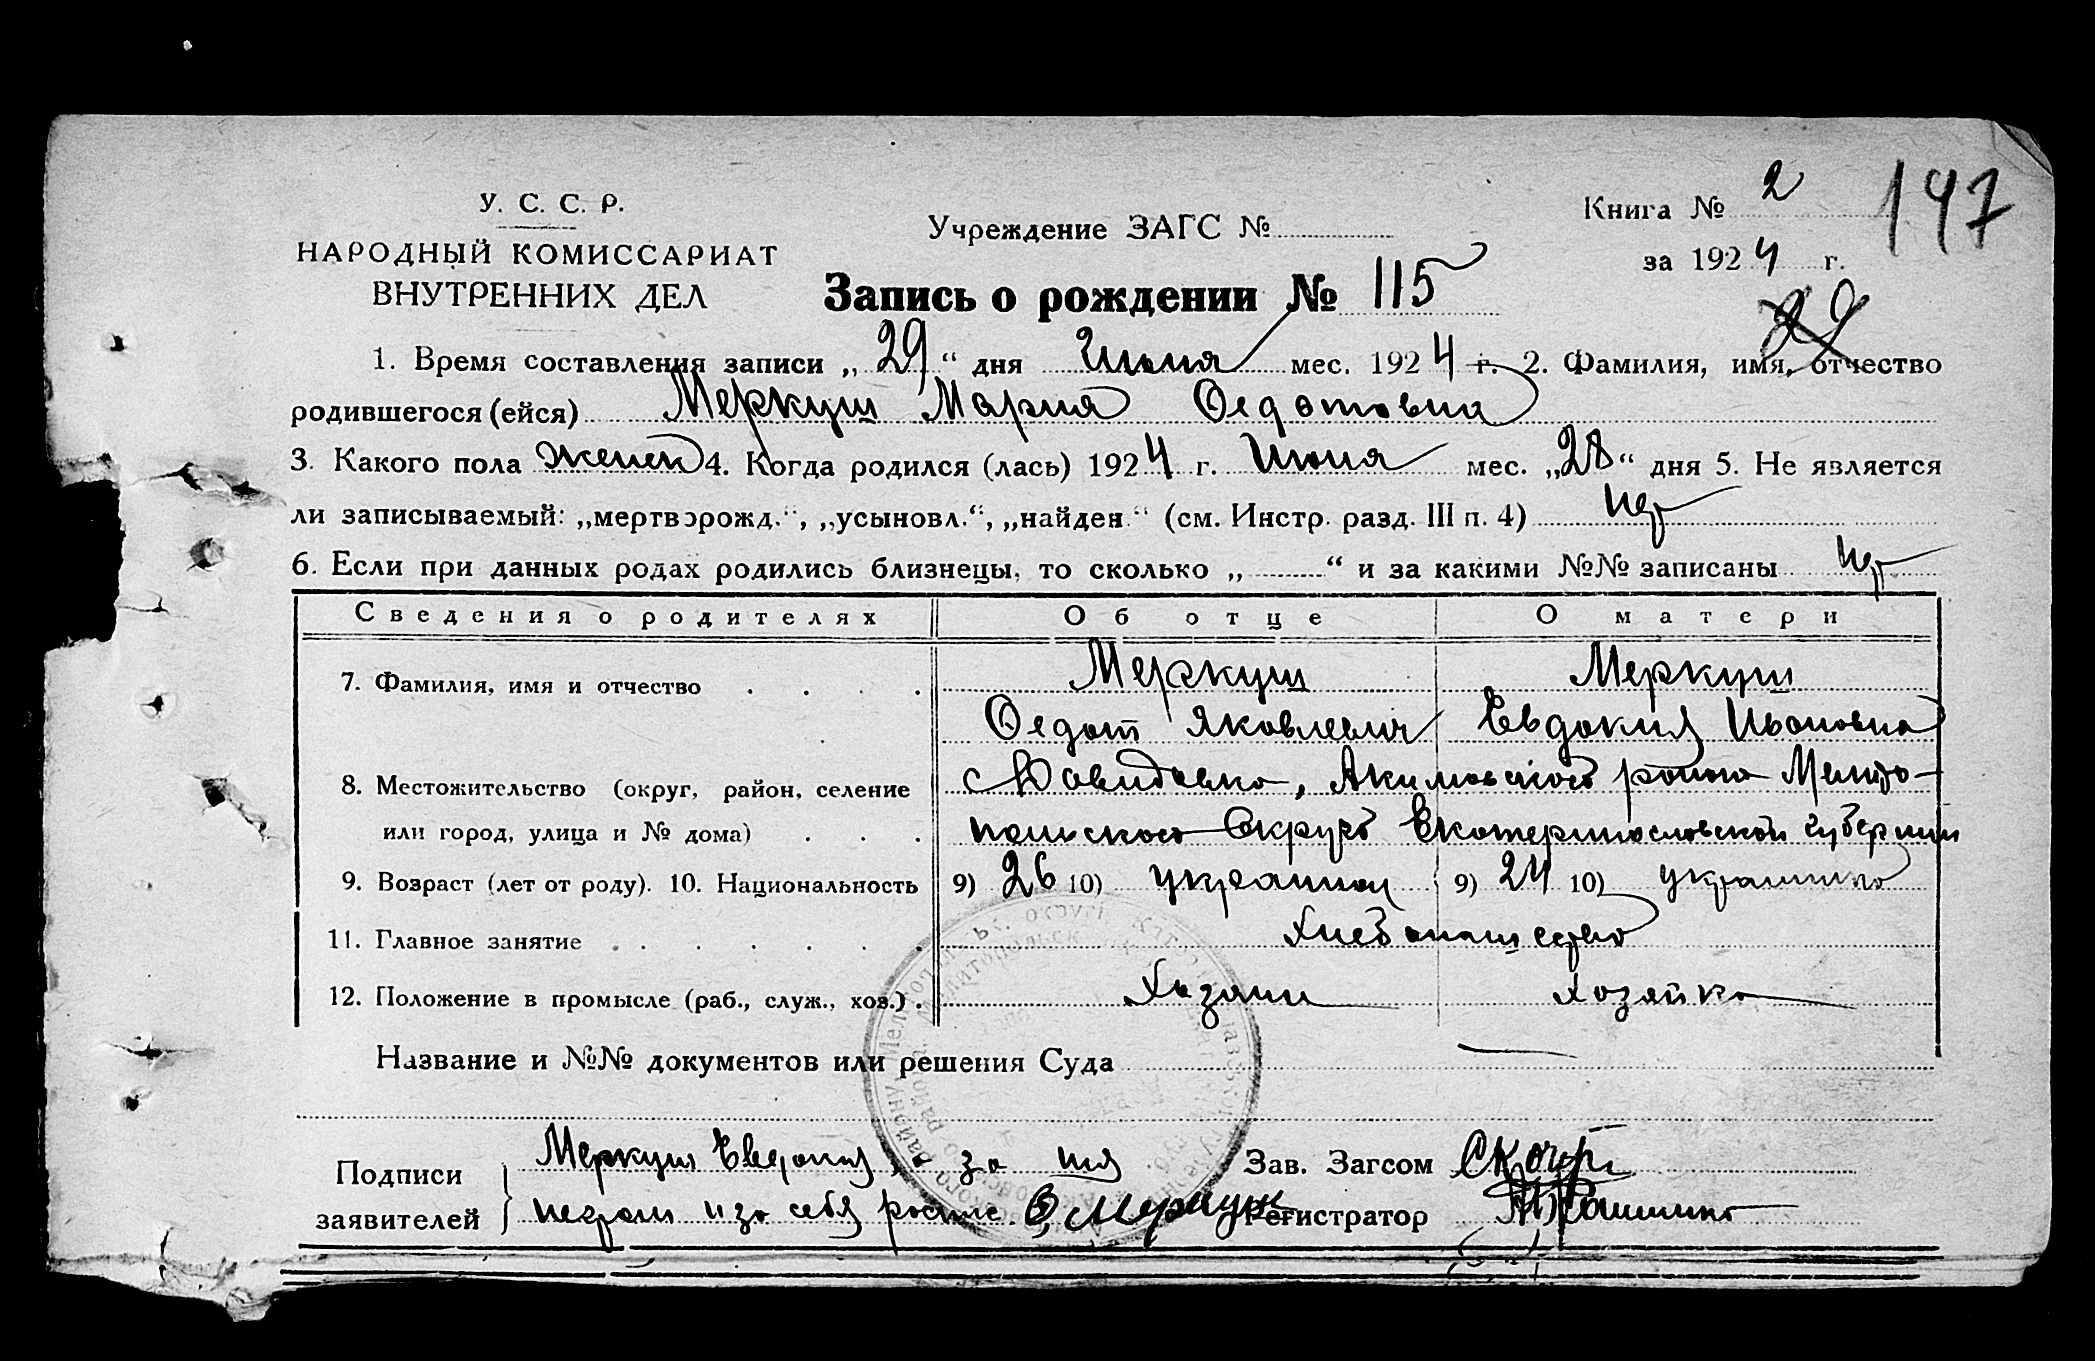 У. С. С. Р.
НАРОДНЫЙ КОМИССАРИАТ
ВНУТРЕННИХ ДЕЛ
Учреждение ЗАГС №
Книга № 2
147
за 1924 г.
Запись о рождении № 115
29
1. Время составления записи „29“ дня Июня мес. 1924 г. 2. Фамилия, имя, отчество
родившегося (ейся) Меркуш Мария Федотовна
3. Какого пола женск 4. Когда родился (лась) 1924 г. Июня мес. „28“ дня 5. Не является
ли записываемый: „мертворожд.“, „усыновл.“, „найден.“ (см. Инстр. разд. III п. 4) нет
6. Если при данных родах родились близнецы, то сколько „ “ и за какими №№ записаны нет
Сведения о родителях Об отце О матери
7. Фамилия, имя и отчество Меркуш Меркуш
Федот Яковлевич Евдокия Ивановна
8. Местожительство (округ, район, селение с Давидовка, Акимовского района Мелито-
или город, улица и № дома) польского Округа Екатеринославской губернии
9. Возраст (лет от роду). 10. Национальность 9) 26 10) украинец 9) 24 10) украинка
11. Главное занятие Хлебопашество
12. Положение в промысле (раб., служ., хоз.) Хозяин Хозяйка
Название и №№ документов или решения Суда —
Подписи заявителей
Меркуш Евдокия, а за
негр. и за себя роспис. Ф. Меркуш
Зав. Загсом
Регистратор